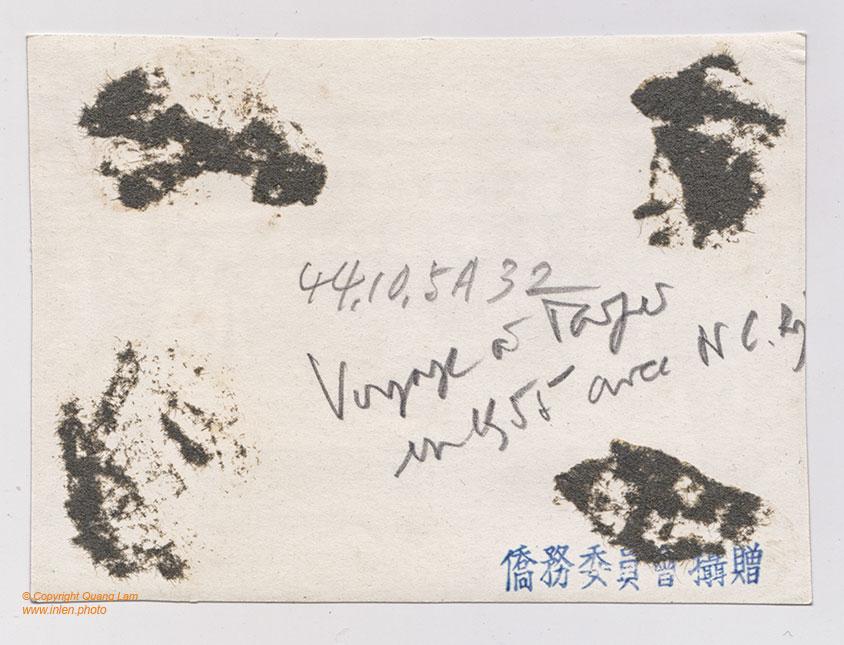 44.10.5A 32
Voyage à Taipei
en 1955 avec N C.
僑務委員會攝贈
© Copyright Quang Lam
www.inlen.photo